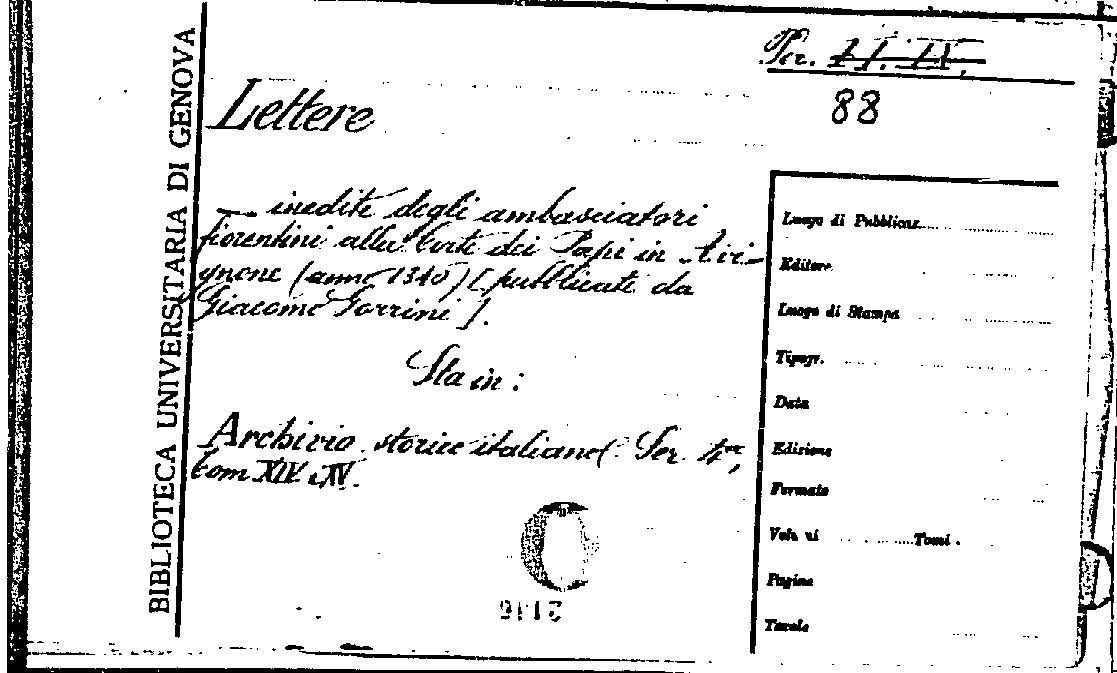 BIBLIOTECA UNIVERSITARIA DI GENOVA
Per. II. IV.
88
Lettere
— inedite degli ambasciatori
fiorentini alla Corte dei Papi in Avi-
gnone (anno 1340) [pubblicate da
Giacomo Gorrini].
Sta in:
Archivio storico italiano. Ser. 4ª,
tom XIV e XV.
Luogo di Pubblicaz.
Editore
Luogo di Stampa
Tipogr.
Data
Edizione
Formato
Volumi Tomi
Pagine
Tavole